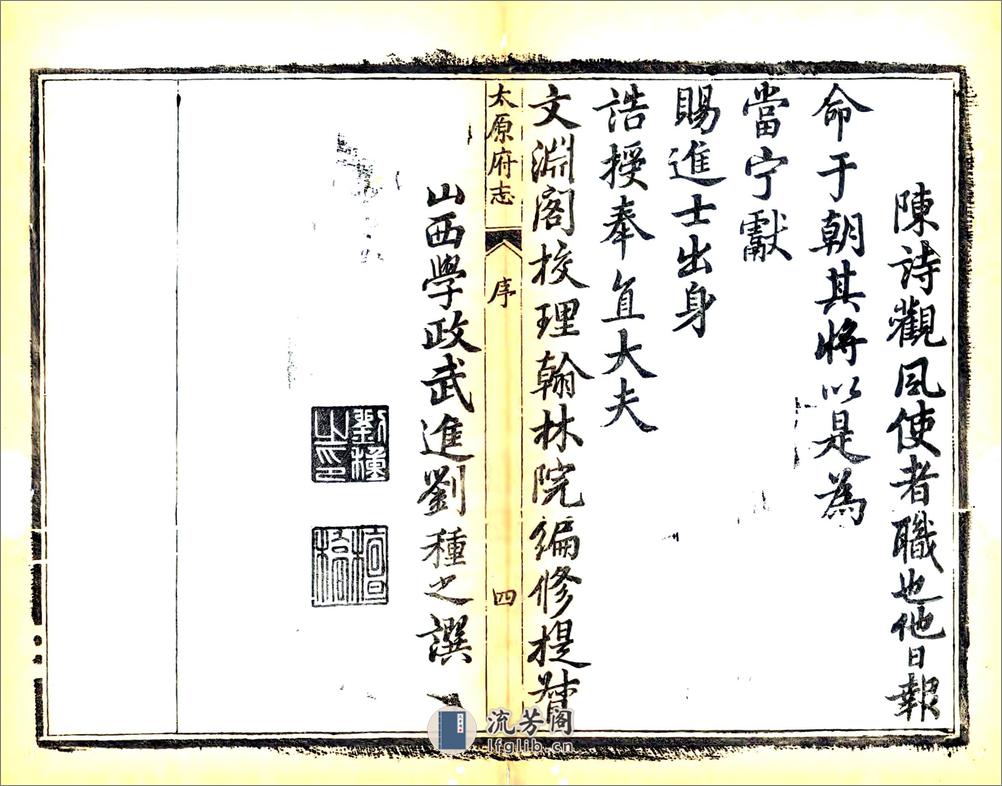 陳詩觀風使者職也他日報
命于朝其將以是為
當宁獻
賜進士出身
誥授奉直大夫
文淵閣校理翰林院編修提督
太原府志
序
四
山西學政武進劉種之撰
劉種之印
流芳阁
lfglib.cn